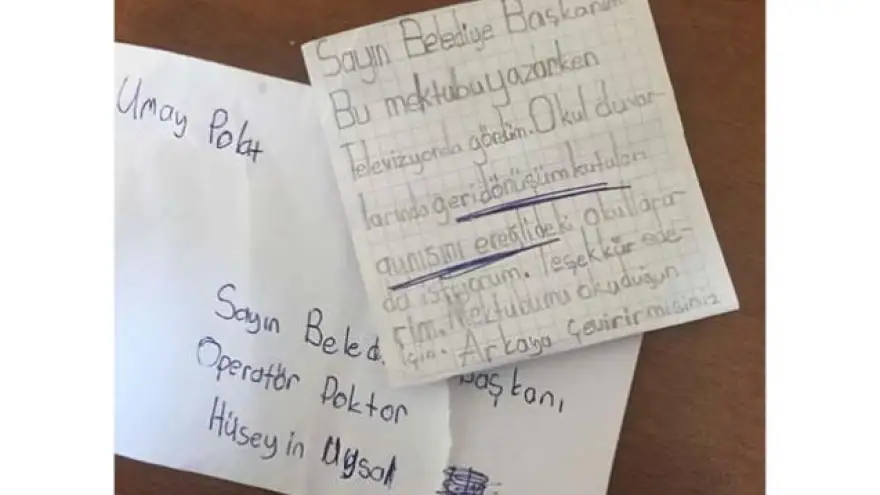 Umay Polat
Sayın Beled
Başkanı
Operatör Doktor
Hüseyin Uysal
Sayın Belediye Başkanım
Bu mektubu yazarken
Televizyonda gördüm. Okul duvar-
larında geri dönüşüm kutuları
aynısını ereğlideki okullara
da istiyorum. Teşekkür ede-
rim. Mektubumu okuduğun
için. Arkaya Çevirirmisiniz